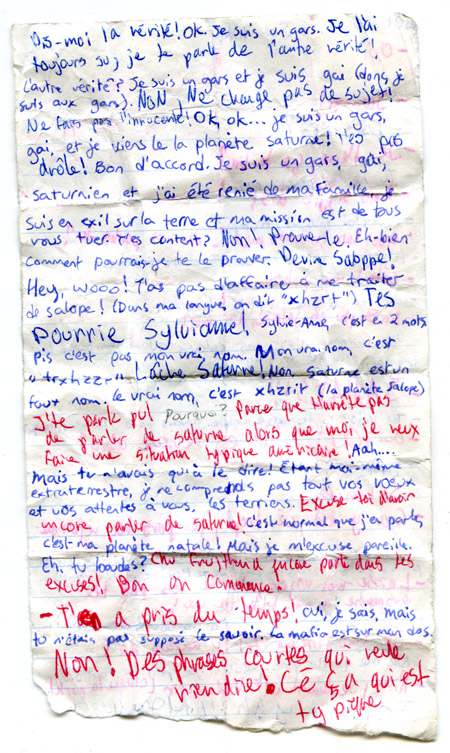 Dis-moi la vérité! Ok. Je suis un gars. Je l'ai
toujours su, je te parle de l'autre vérité!
L'autre vérité? Je suis un gars et je suis gai (donc, je
suis aux gars). NON, Ne change pas de sujet!
Ne fais pas l'innocente! Ok, ok... je suis un gars,
gai, et je viens de la planète saturne! T'es pas
drôle! Bon d'accord. Je suis un gars, gai,
saturnien et j'ai été renié de ma famille, je
suis en exil sur la terre et ma mission est de tous
vous tuer. T'es content? Non! Prouve-le. Eh-bien
comment pourrais-je te le prouver. Devine Saloppe!
Hey, wooo! T'as pas d'affaire à me traiter
de salope! (Dans ma langue, on dit "xhzrt") T'es
Pourrie Sylvianne! Sylvie-Anne, c'est en 2 mots
pis c'est pas mon vrai nom. Mon vrai nom, c'est
"trxhzzr" Lâche Saturne! Non, Saturne est un
faux nom. Le vrai nom, c'est xhzrit (la planète salope)
J'te parle pu! Pourquoi? Parce que t'arrête pas
de parler de saturne alors que moi je veux
faire une situation typique américaine! Aah....
Mais tu n'avais qu'à le dire! Étant moi-même
extraterrestre, je ne comprends pas tout vos voeux
et vos attentes à vous, les terriens. Excuse-toi d'avoir
encore parler de saturne! C'est normal que j'en parle,
c'est ma planète natale! Mais je m'excuse pareille.
Eh, tu boudes? Chu
excuses! Bon on commence.
- T'en a pris du temps! oui, je sais, mais
tu n'étais pas supposé le savoir. La mafia est sur mon dos.
Non! Des phrases courtes qui veule
rien dire! Cé ça qui est
typique